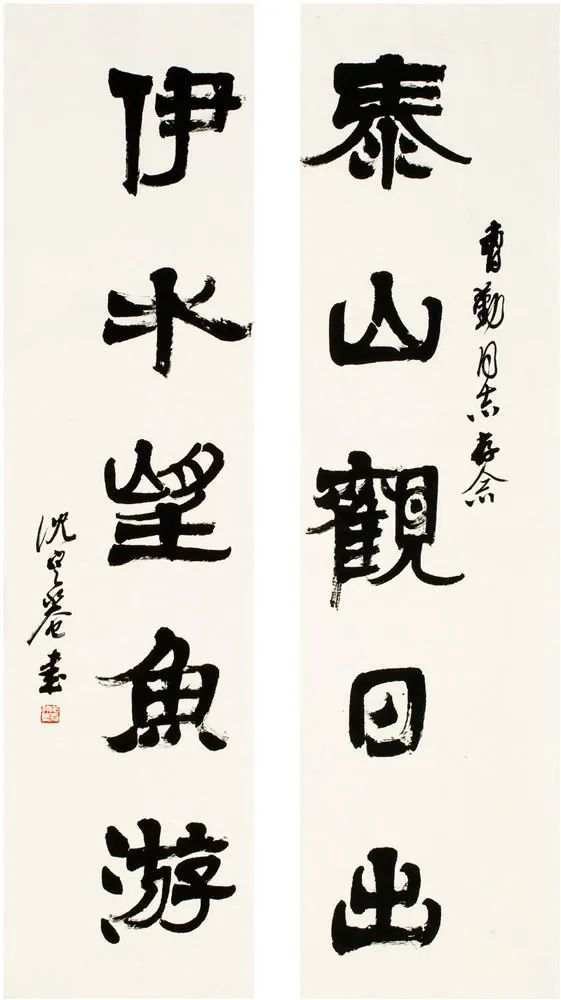 曹勤同志存念
泰山觀日出
伊水望魚游
沈定菴書